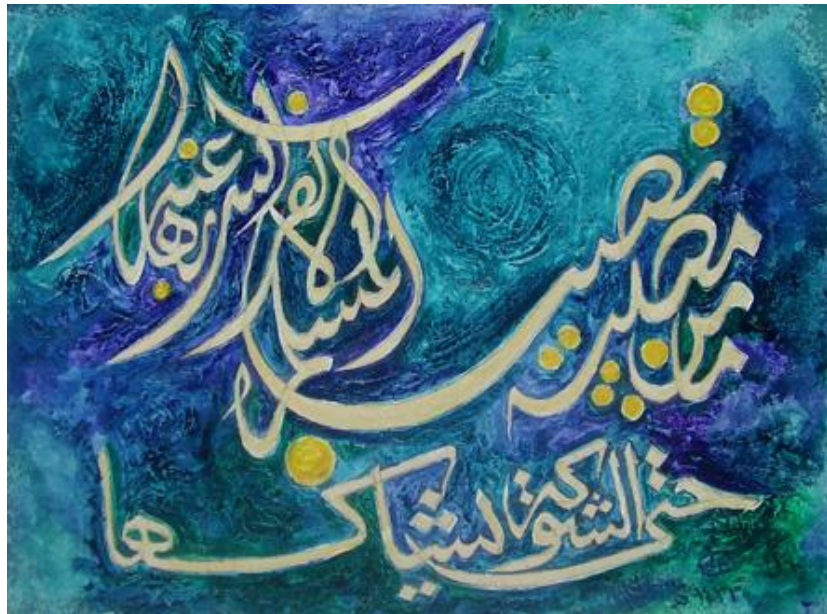 ما من مصيبة تصيب المسلم إلا كفر الله بها عنه
حتى الشوكة يشاكها